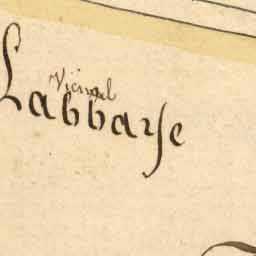 Vicinal
Labbaye